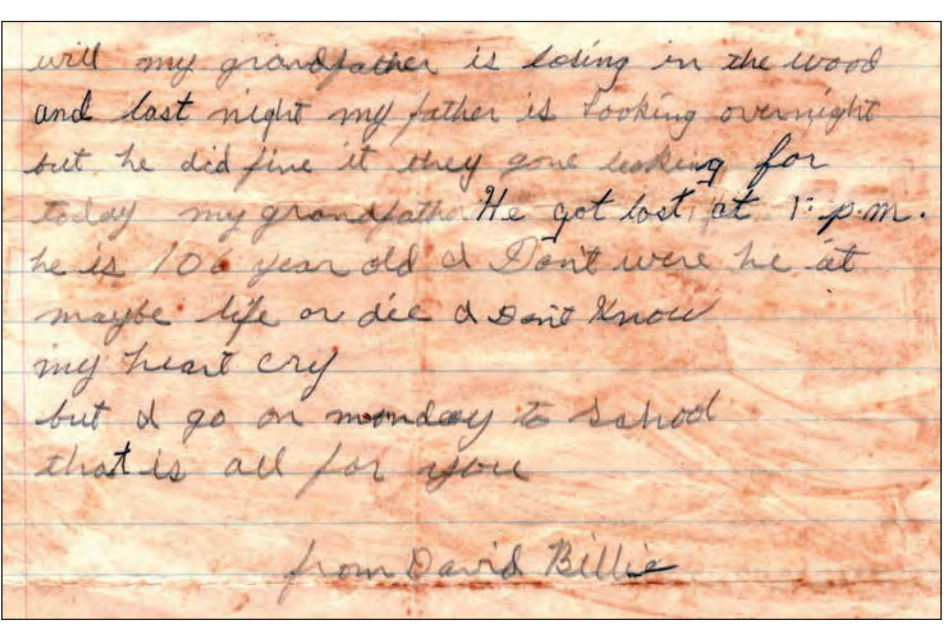 will my grandfather is losing in the wood
and last night my father is looking overnight
but he did fine it they gone looking for
today my grandfather He got lost at 1: p.m.
he is 106 year old I Don't were he at
maybe life or dee I Don't Know
my heart cry
but I go on monday to school
that is all for you
from David Billie